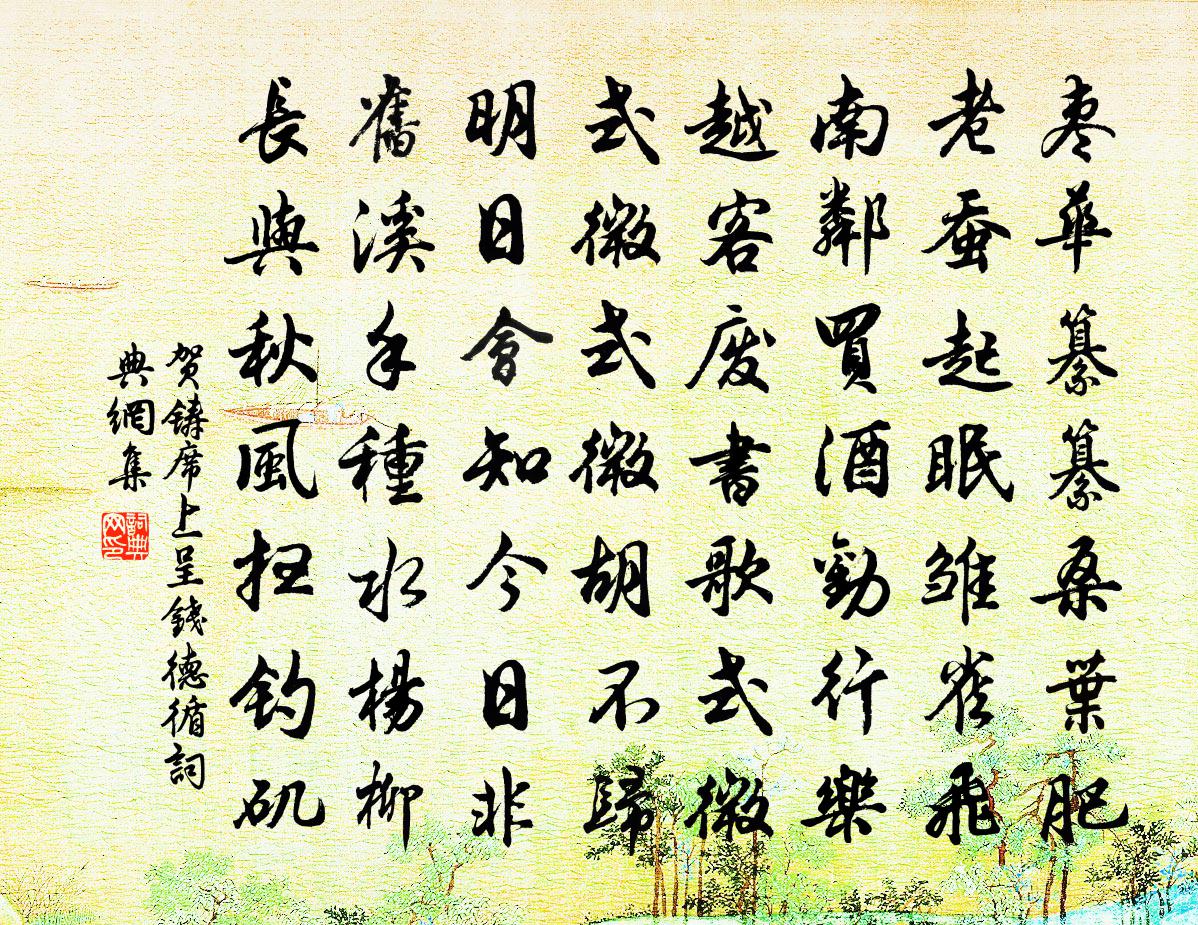 枣華纂纂桑葉肥
老蚕起眠雏雀飛
南鄰買酒勸行樂
越客废書歌式微
式微式微胡不歸
明日會知今日非
舊溪手種水楊柳
長與秋風扫釣矶
贺鑄席上呈錢德循詞
典網集
詞典
网印